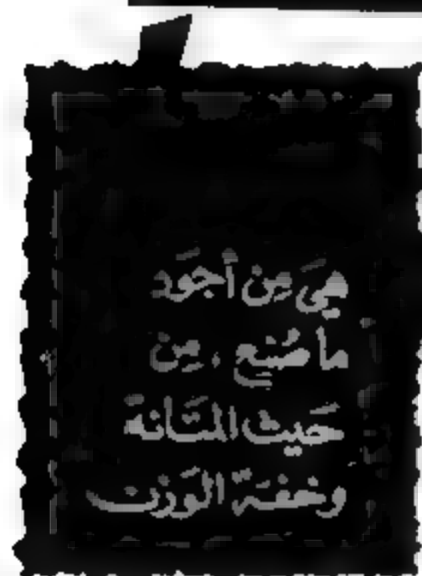 هِيَ مِن أجوَد
ما صُنِع ، مِن
حَيث المتَانة
وخفّة الوَزن